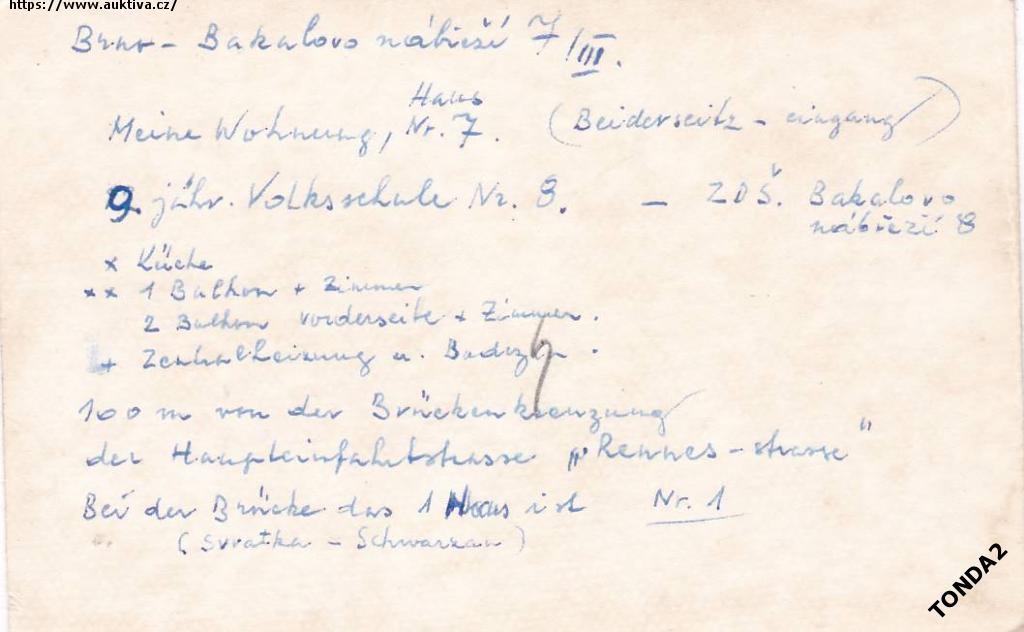 https://www.auktiva.cz/
Brno - Bakalovo nábřeží 7/III.
Haus
Meine Wohnung, Nr. 7. (Beiderseitz - eingang)
9. jähr. Volksschule Nr. 8. - ZDŠ. Bakalovo
nábřeží 8
x Küche
x x 1 Balkon + Zimmer
2 Balkon vorderseite + Zimmer.
+ Zentralheizung u.
100 m von der Brückenkreuzung
der Haupteinfahrtstrasse „Rennes-strasse"
Bei der Brücke das 1 Haus ist Nr. 1
(Svratka - Schwarzau)
TONDA2